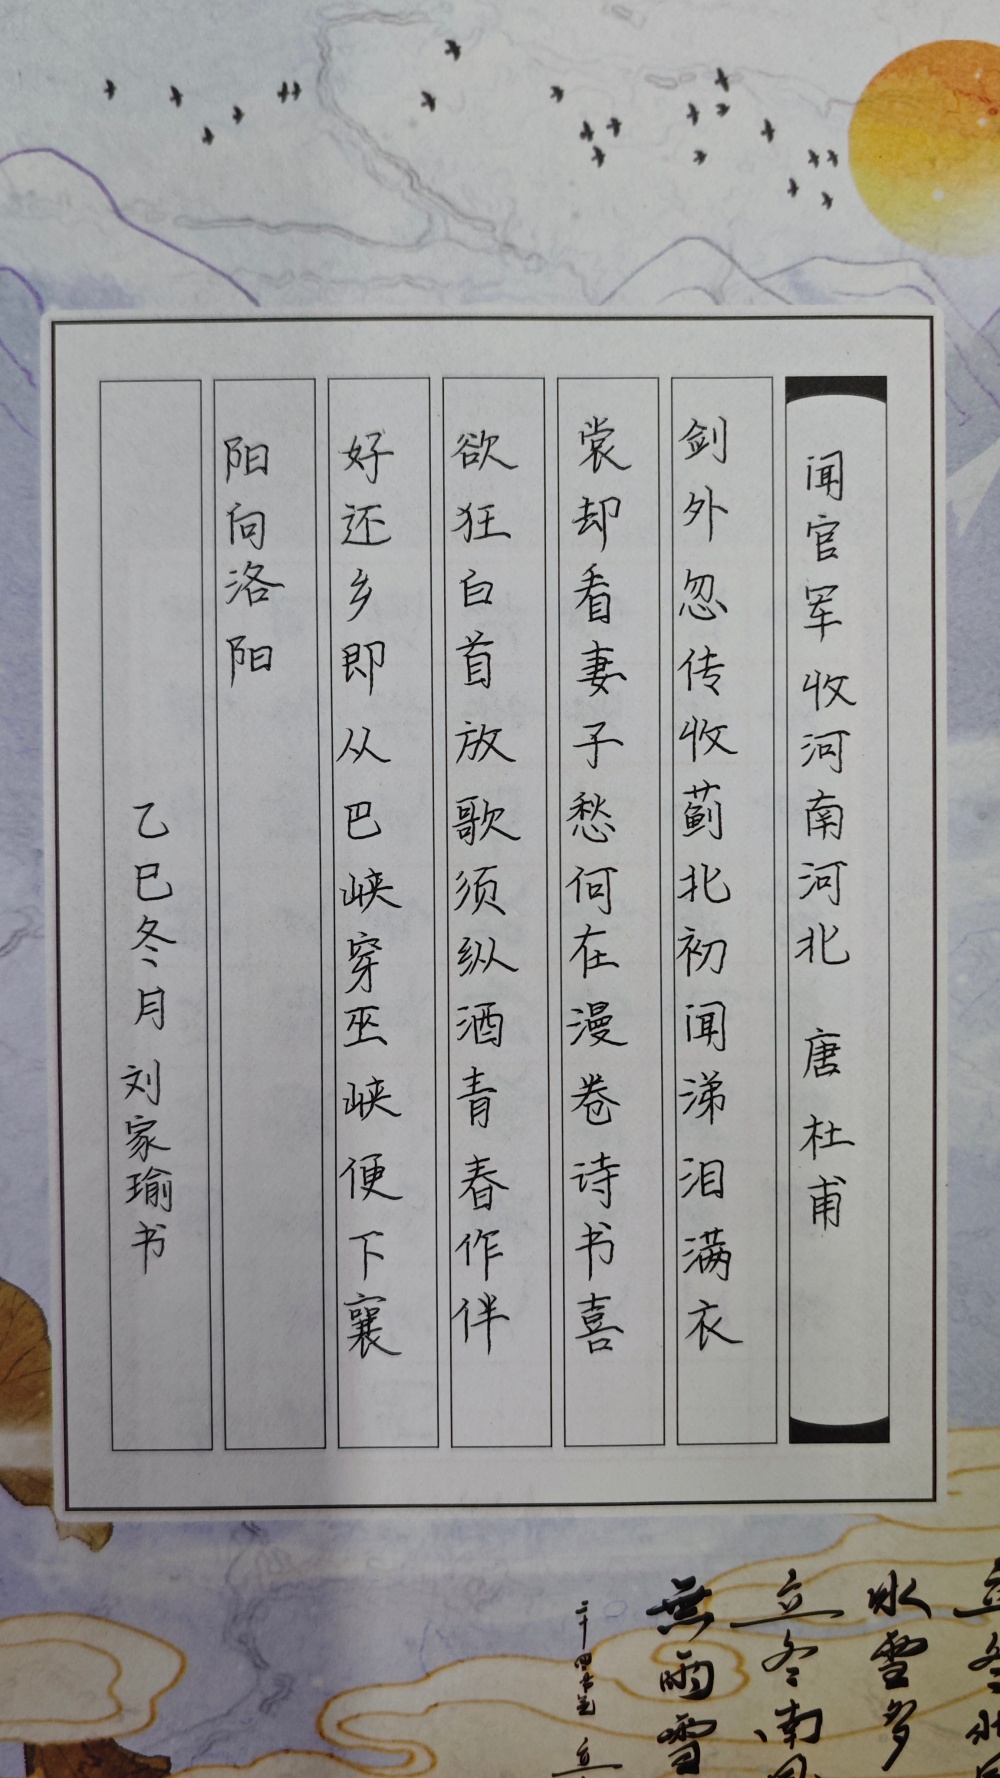 闻官军收河南河北 唐 杜甫
剑外忽传收蓟北初闻涕泪满衣
裳却看妻子愁何在漫卷诗书喜
欲狂白首放歌须纵酒青春作伴
好还乡即从巴峡穿巫峡便下襄
阳向洛阳
乙巳冬月 刘家瑜书
冰雪多
立冬南风
無雨雪
二十四节气 立